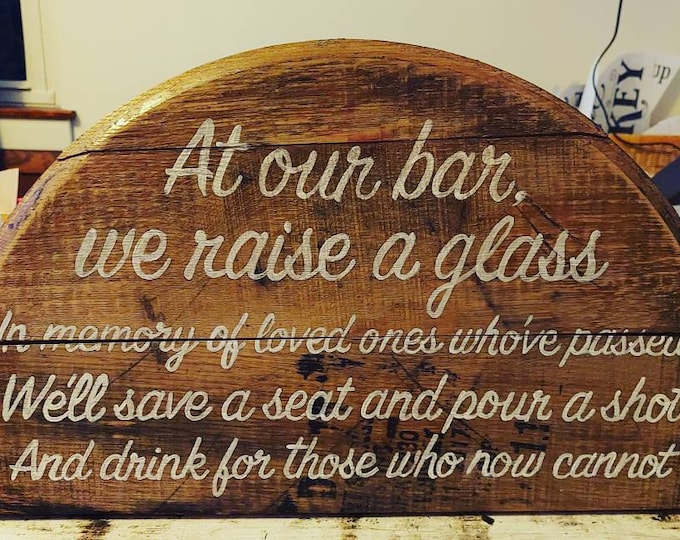 At our bar,
we raise a glass
In memory of loved ones who've passed
We'll save a seat and pour a shot
And drink for those who now cannot
KEY
up